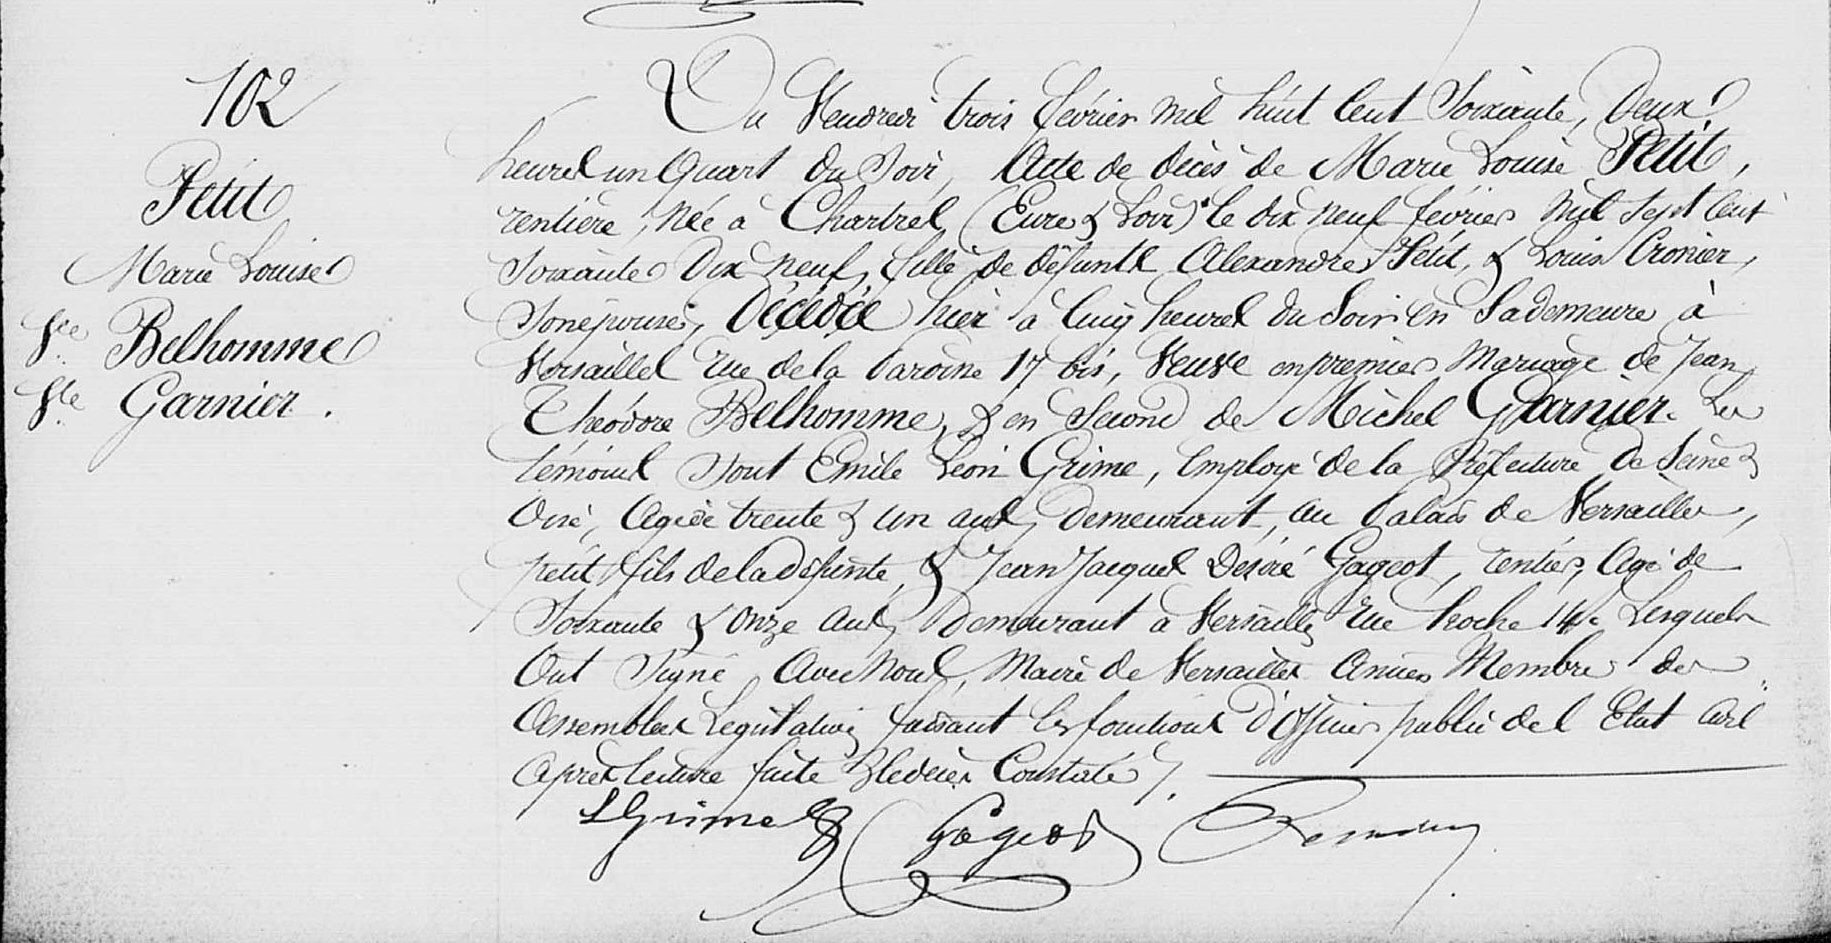 102
Petit
Marie Louise
Vve Belhomme
Vve Garnier.
Du Vendredi trois février mil huit cent Soixante, Deux
heures un Quart du Soir, Acte de décès de Marie Louise Petit,
rentière, Née à Chartres (Eure & Loir) le dix neuf février mil sept cent
Soixante Dix neuf, fille de défunts Alexandre Petit, & Louise Cronier,
Son épouse, Décédée hier à Cinq heures du Soir en Sa demeure à
Versailles rue de la Paroisse 17 bis, Veuve en premier Mariage de Jean
Théodore Belhomme, & en Second de Michel Garnier. Les
témoins Sont Emile Léon Grime, Employé de la Préfecture de Seine &
Oise, Agé de trente & un ans, Demeurant, au Palais de Versailles,
petit fils de la Défunte, & Jean Jacques Désiré Gageot, rentier, Agé de
Soixante & Onze ans, Demeurant à Versailles rue hoche 14. Lesquels
Ont Signé Avec Nous, Maire de Versailles Ancien Membre des
Assemblées Législatives faisant les fonctions D'officier public de l'Etat Civil
Après lecture faite & le décès Constaté /.
LGrime Gageot